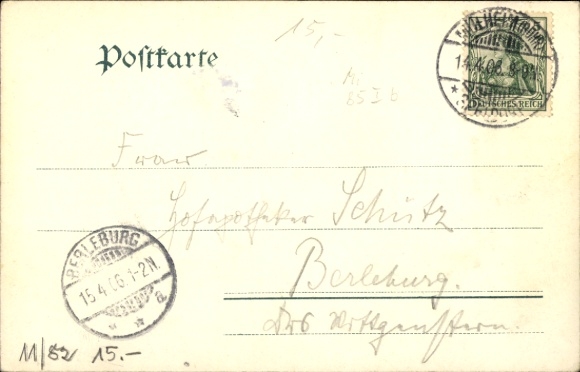 15,-
Postkarte
MÜLHEIM (RUHR)
14.4.06. 8-9
DEUTSCHES REICH
M.
85 I b
Frau
Hofapotheker Schütz
Berleburg.
BERLEBURG
15.4.06.1-2N.
a
Wittgenstein.
11/82 15.-